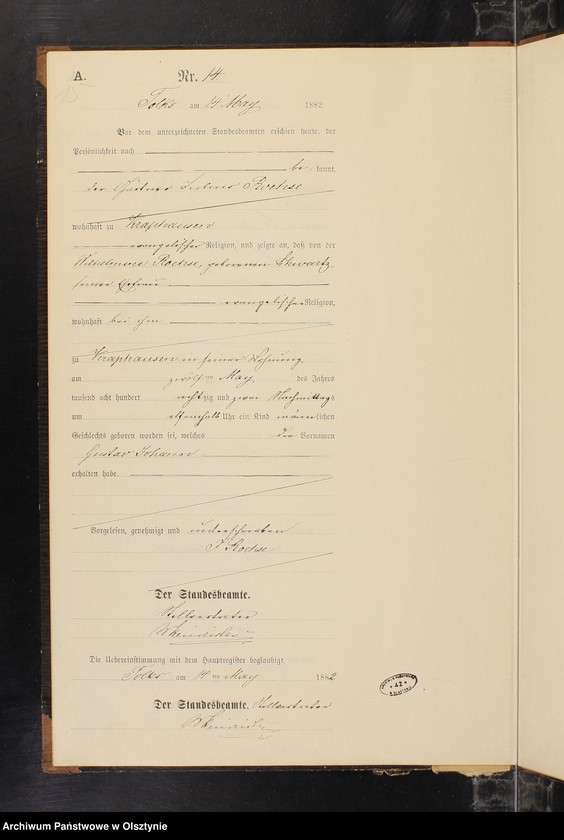 A. Nr. 14
15
Tolks am 14 May 1882
Vor dem unterzeichneten Standesbeamten erschien heute, der
Persönlichkeit nach
be kannt,
der Gärtner Julius
wohnhaft zu Kraphausen
evangelischer Religion, und zeigte an, daß von der
Wilhelmine geborenen
seiner Ehefrau
evangelischer Religion,
wohnhaft bei ihm
zu Kraphausen in seiner Wohnung
am zwölften May des Jahres
tausend acht hundert achtzig und zwei Nachmittags
um Uhr ein Kind männlichen
Geschlechts geboren worden sei, welches die Vornamen
Gustav Johann
erhalten habe.
Vorgelesen, genehmigt und unterschrieben
J
Der Standesbeamte.
Stellvertreter
Die Uebereinstimmung mit dem Hauptregister beglaubigt
Tolks am 14 ten May 1882
Der Standesbeamte. Stellvertreter
Archiwum Państwowe w Olsztynie